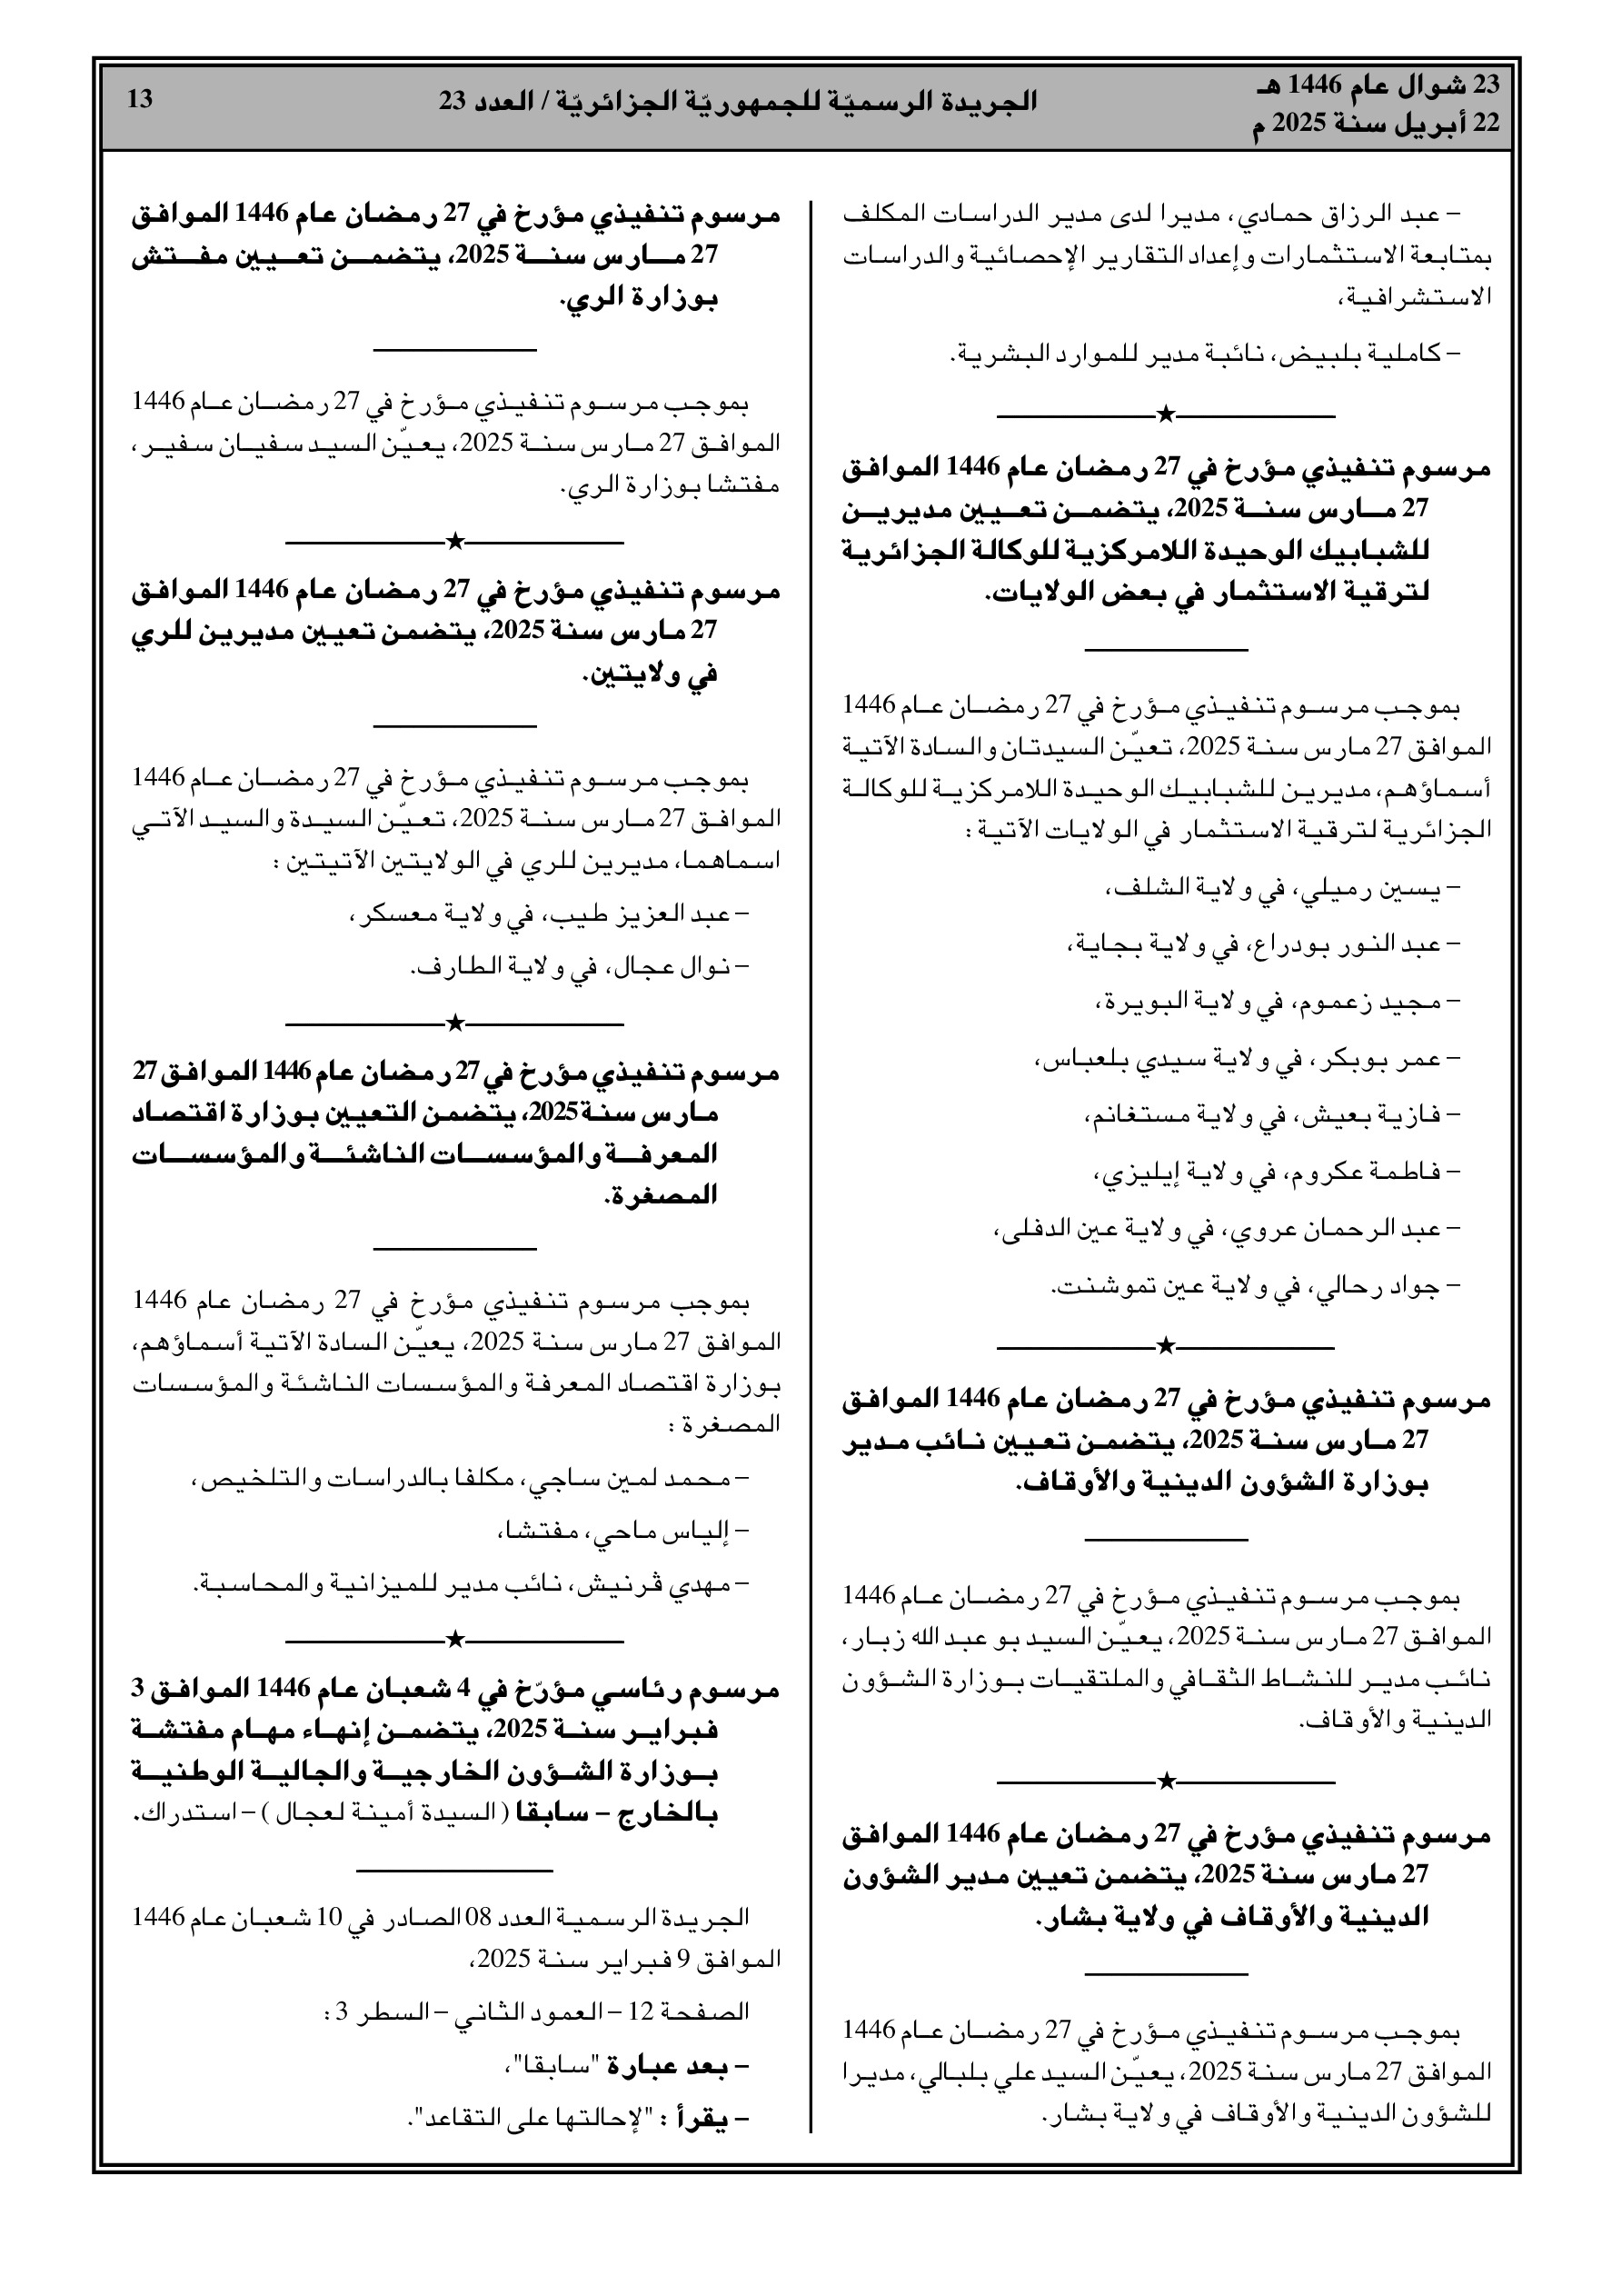 23 شوال عام 1446 هـ
22 أبريل سنة 2025 م
الجريدة الرسميّة للجمهوريّة الجزائريّة / العدد 23
13
– عبد الرزاق حمادي، مديرا لدى مدير الدراسات المكلف
بمتابعة الاستثمارات وإعداد التقارير الإحصائية والدراسات
الاستشرافية،
– كاملية بلبيض، نائبة مدير للموارد البشرية.
مرسوم تنفيذي مؤرخ في 27 رمضان عام 1446 الموافق
27 مارس سنة 2025، يتضمن تعيين مديرين
للشبابيك الوحيدة اللامركزية للوكالة الجزائرية
لترقية الاستثمار في بعض الولايات.
بموجب مرسوم تنفيذي مؤرخ في 27 رمضان عام 1446
الموافق 27 مارس سنة 2025، تعيّن السيدتان والسادة الآتية
أسماؤهم، مديرين للشبابيك الوحيدة اللامركزية للوكالة
الجزائرية لترقية الاستثمار في الولايات الآتية :
– يسين رميلي، في ولاية الشلف،
– عبد النور بودراع، في ولاية بجاية،
– مجيد زعموم، في ولاية البويرة،
– عمر بوبكر، في ولاية سيدي بلعباس،
– فازية بعيش، في ولاية مستغانم،
– فاطمة عكروم، في ولاية إيليزي،
– عبد الرحمان عروي، في ولاية عين الدفلى،
– جواد رحالي، في ولاية عين تموشنت.
مرسوم تنفيذي مؤرخ في 27 رمضان عام 1446 الموافق
27 مارس سنة 2025، يتضمن تعيين نائب مدير
بوزارة الشؤون الدينية والأوقاف.
بموجب مرسوم تنفيذي مؤرخ في 27 رمضان عام 1446
الموافق 27 مارس سنة 2025، يعيّن السيد بو عبد الله زبار،
نائب مدير للنشاط الثقافي والملتقيات بوزارة الشؤون
الدينية والأوقاف.
مرسوم تنفيذي مؤرخ في 27 رمضان عام 1446 الموافق
27 مارس سنة 2025، يتضمن تعيين مدير الشؤون
الدينية والأوقاف في ولاية بشار.
بموجب مرسوم تنفيذي مؤرخ في 27 رمضان عام 1446
الموافق 27 مارس سنة 2025، يعيّن السيد علي بلبالي، مديرا
للشؤون الدينية والأوقاف في ولاية بشار.
مرسوم تنفيذي مؤرخ في 27 رمضان عام 1446 الموافق
27 مارس سنة 2025، يتضمن تعيين مفتش
بوزارة الري.
بموجب مرسوم تنفيذي مؤرخ في 27 رمضان عام 1446
الموافق 27 مارس سنة 2025، يعيّن السيد سفيان سفير،
مفتشا بوزارة الري.
مرسوم تنفيذي مؤرخ في 27 رمضان عام 1446 الموافق
27 مارس سنة 2025، يتضمن تعيين مديرين للري
في ولايتين.
بموجب مرسوم تنفيذي مؤرخ في 27 رمضان عام 1446
الموافق 27 مارس سنة 2025، تعيّن السيدة والسيد الآتي
اسماهما، مديرين للري في الولايتين الآتيتين :
– عبد العزيز طيب، في ولاية معسكر،
– نوال عجال، في ولاية الطارف.
مرسوم تنفيذي مؤرخ في 27 رمضان عام 1446 الموافق 27
مارس سنة 2025، يتضمن التعيين بوزارة اقتصاد
المعرفة والمؤسسات الناشئة والمؤسسات
المصغرة.
بموجب مرسوم تنفيذي مؤرخ في 27 رمضان عام 1446
الموافق 27 مارس سنة 2025، يعيّن السادة الآتية أسماؤهم،
بوزارة اقتصاد المعرفة والمؤسسات الناشئة والمؤسسات
المصغرة :
– محمد لمين ساجي، مكلفا بالدراسات والتلخيص،
– إلياس ماحي، مفتشا،
– مهدي ڤرنيش، نائب مدير للميزانية والمحاسبة.
مرسوم رئاسي مؤرّخ في 4 شعبان عام 1446 الموافق 3
فبراير سنة 2025، يتضمن إنهاء مهام مفتشة
بوزارة الشؤون الخارجية والجالية الوطنية
بالخارج – سابقا ( السيدة أمينة لعجال ) – استدراك.
الجريدة الرسمية العدد 08 الصادر في 10 شعبان عام 1446
الموافق 9 فبراير سنة 2025،
الصفحة 12 – العمود الثاني – السطر 3 :
– بعد عبارة "سابقا"،
– يقرأ : "لإحالتها على التقاعد".